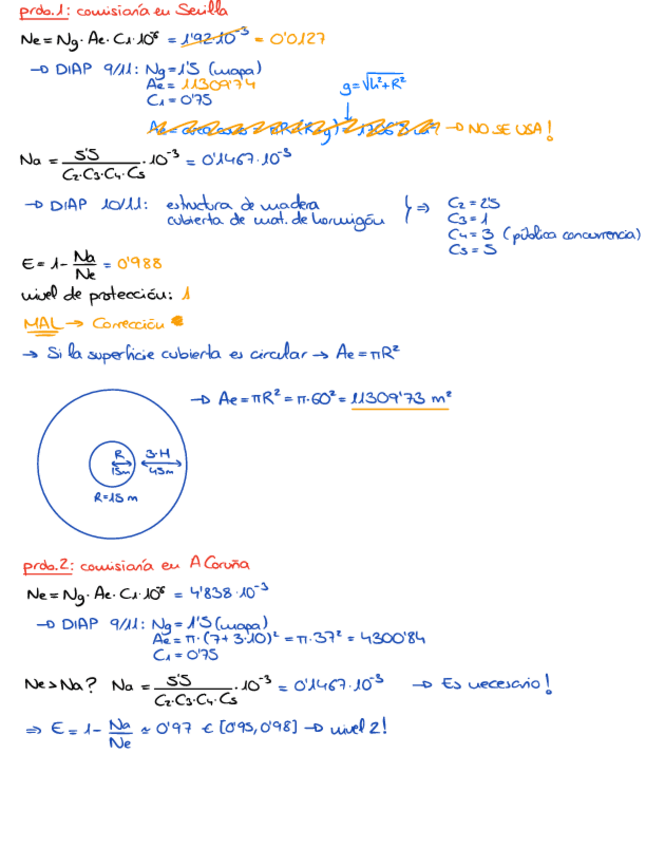 prdo.1: comisaría en Sevilla
Ne = Ng · Ae · C1 · 10⁻⁶ = 1'92·10⁻³ = 0'0127
→ DIAP 9/11: Ng = 1'5 (mapa)
Ae = 11309'74
C1 = 0'75
g = √h²+R²
→ NO SE USA!
Na = 5'5 / C2·C3·C4·C5 · 10⁻³ = 0'1467·10⁻³
→ DIAP 10/11: estructura de madera
cubierta de mat. de hormigón
⇒ C2 = 2'5
C3 = 1
C4 = 3 (pública concurrencia)
C5 = 5
E = 1 - Na/Ne = 0'988
nivel de protección: 1
MAL → Corrección
→ Si la superficie cubierta es circular → Ae = πR²
→ Ae = πR² = π·60² = 11309'73 m²
R 3·H
15m 45m
R=15 m
prdo.2: comisaría en A Coruña
Ne = Ng · Ae · C1 · 10⁻⁶ = 4'838·10⁻³
→ DIAP 9/11: Ng = 1'5 (mapa)
Ae = π·(7+3·10)² = π·37² = 4300'84
C1 = 0'75
Ne > Na? Na = 5'5 / C2·C3·C4·C5 · 10⁻³ = 0'1467·10⁻³ → Es necesario!
⇒ E = 1 - Na/Ne ≈ 0'97 ∈ [0'95, 0'98] → nivel 2!